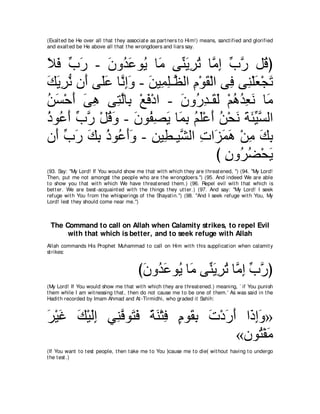 (Exalted be He over all that they associate as partners to Him!) sanctified and glorified
and exalted be He above all that the wrongdoers and liars say.
(قُل رَّبِّ إِمَّا تُرِيَنِّى مَا يُوعَدُونَ - رَبِّ فَلاَ
تَجْعَلْنِى فِى الْقَوْمِ الظَّـلِمِينَ - وَإِنَّا عَلَى أَن نُّرِيَكَ
مَا نَعِدُهُمْ لَقَـدِرُونَ - ادْفَعْ بِالَّتِى هِىَ أَحْسَنُ
السَّيِّئَةَ نَحْنُ أَعْلَمُ بِمَا يَصِفُونَ - وَقُلْ رَّبِّ أَعُوذُ
بِكَ مِنْ هَمَزَاتِ الشَّيـطِينِ - وَأَعُوذُ بِكَ رَبِّ أَن
يَحْضُرُونِ )
(93. Say: "My Lord! If You would show me that with which they are threatened, ") (94. "My Lord!
Then, put me not amongst the people who are the wrongdoers.") (95. And indeed We are able
to show you that with which We have threatened them.) (96. Repel evil with that which is
better. We are best-acquainted with the things they utter.) (97. And say: "My Lord! I seek
refuge with You from the whisperings of the Shayatin.") (98. "And I seek refuge with You, My
Lord! lest they should come near me.")
The Command to call on Allah when Calamity strikes, to repel Evil
with that which is better, and to seek refuge with Allah
Allah commands His Prophet Muhammad to call on Him with this supplication when calamity
strikes:
(رَّبِّ إِمَّا تُرِيَنِّى مَا يُوعَدُونَ)
(My Lord! If You would show me that with which they are threatened.) meaning, `if You punish
them while I am witnessing that, then do not cause me to be one of them.' As was said in the
Hadith recorded by Imam Ahmad and At-Tirmidhi, who graded it Sahih:
«وَإِذَا أَرَدْتَ بِقَوْمٍ فِتْنَةً فَتَوَفَّنِي إِلَيْكَ غَيْرَ
مَفْتُون»
(If You want to test people, then take me to You [cause me to die] without having to undergo
the test.)